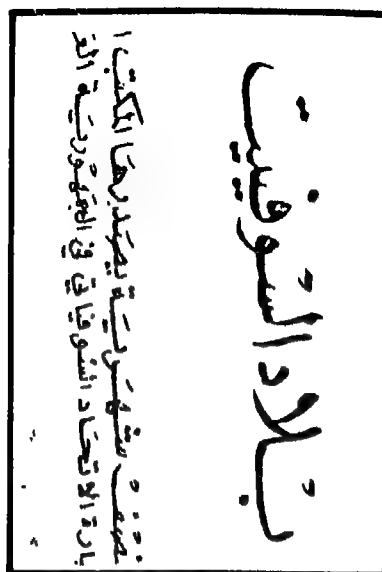 بلاد السوفيت
نصف شهرية يصدرها المكتب ا
بارة الاتحاد السوفياتي في الجمهورية الع